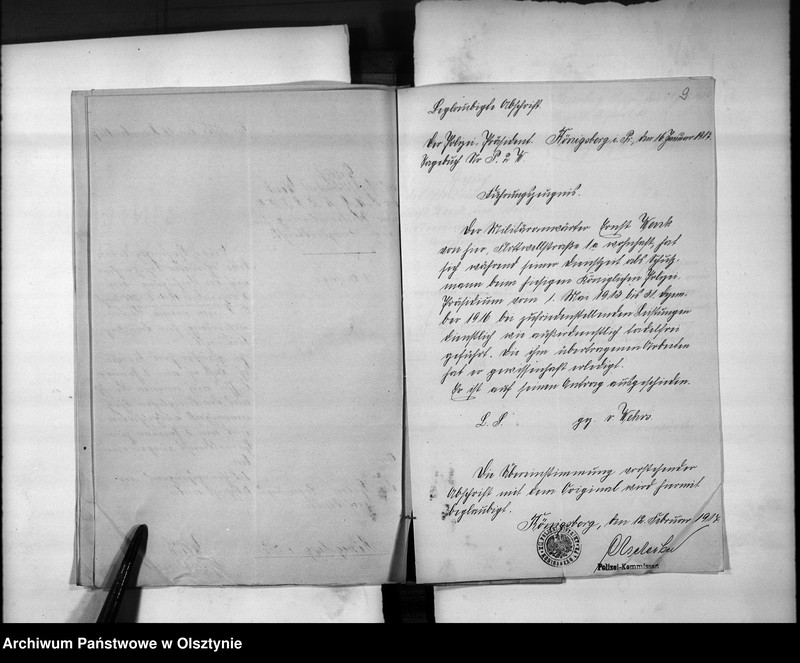 9
Beglaubigte Abschrift.
Der Polizei-Präsident. Königsberg i. Pr., den 16 Januar 1917.
Tagebuch Nr P. 2 W.
Führungszeugnis.
Der Militäranwärter Ernst
von hier, 1a wohnhaft, hat
sich während seiner Dienstzeit als Schutz-
mann beim hiesigen Königlichen Polizei-
Präsidium vom 1. Mai 1913 bis 31. Dezem-
ber 1916 bei zufriedenstellenden Leistungen
dienstlich wie außerdienstlich tadelfrei
geführt. Die ihm übertragenen Arbeiten
hat er gewissenhaft erledigt.
Er ist auf seinen Antrag ausgeschieden.
L. S. gez. v Wehrs.
Die Übereinstimmung vorstehender
Abschrift mit dem Original wird hiermit
beglaubigt.
Königsberg, den 12. Februar 1917.
Polizei-Kommissar
Archiwum Państwowe w Olsztynie